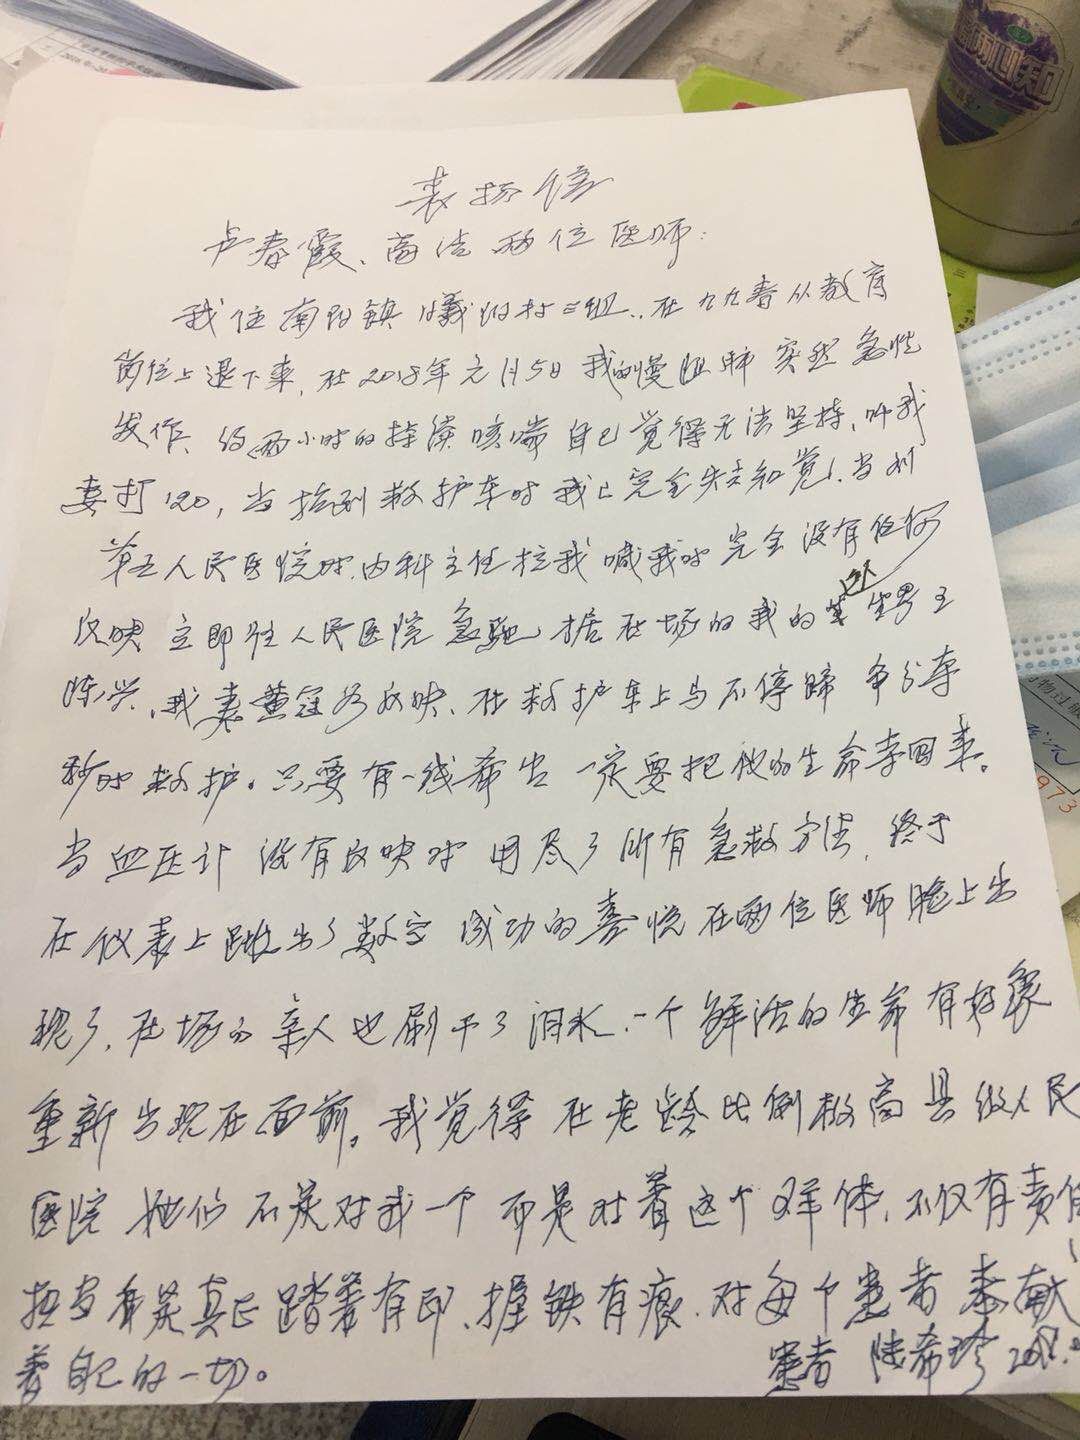 表扬信
卢春霞、高洁两位医师:
我住南阳镇 村三组..在九九春从教育
岗位上退下来,在2018年元月5日我的慢阻肺突然急性
发作、约两小时的持续咳喘自己觉得无法坚持,叫我
妻打120,当抬到救护车时我已完全失去知觉、当到
第五人民医院时,内科主任拉我喊我时完全没有任何
反映立即往人民医院急驰,据在场的我的 王
陈兴、我妻黄 反映、在救护车上马不停蹄争分夺
秒的救护。只要有一线希望一定要把他的生命夺回来。
当血压计没有反映时用尽了所有急救方法,终于
在仪表上跳出了数字成功的喜悦在两位医师脸上出
现了,在场的亲人也刷干了泪水,一个鲜活的生命有好象
重新出现在面前。我觉得在老龄比例极高县级人民
医院她们不是对我一个而是对着这个群体,不仅有责任
担当有是真正踏着有印、握铁有痕,对每个患者奉献
着自己的一切。
患者 陆希珍 2018.
973